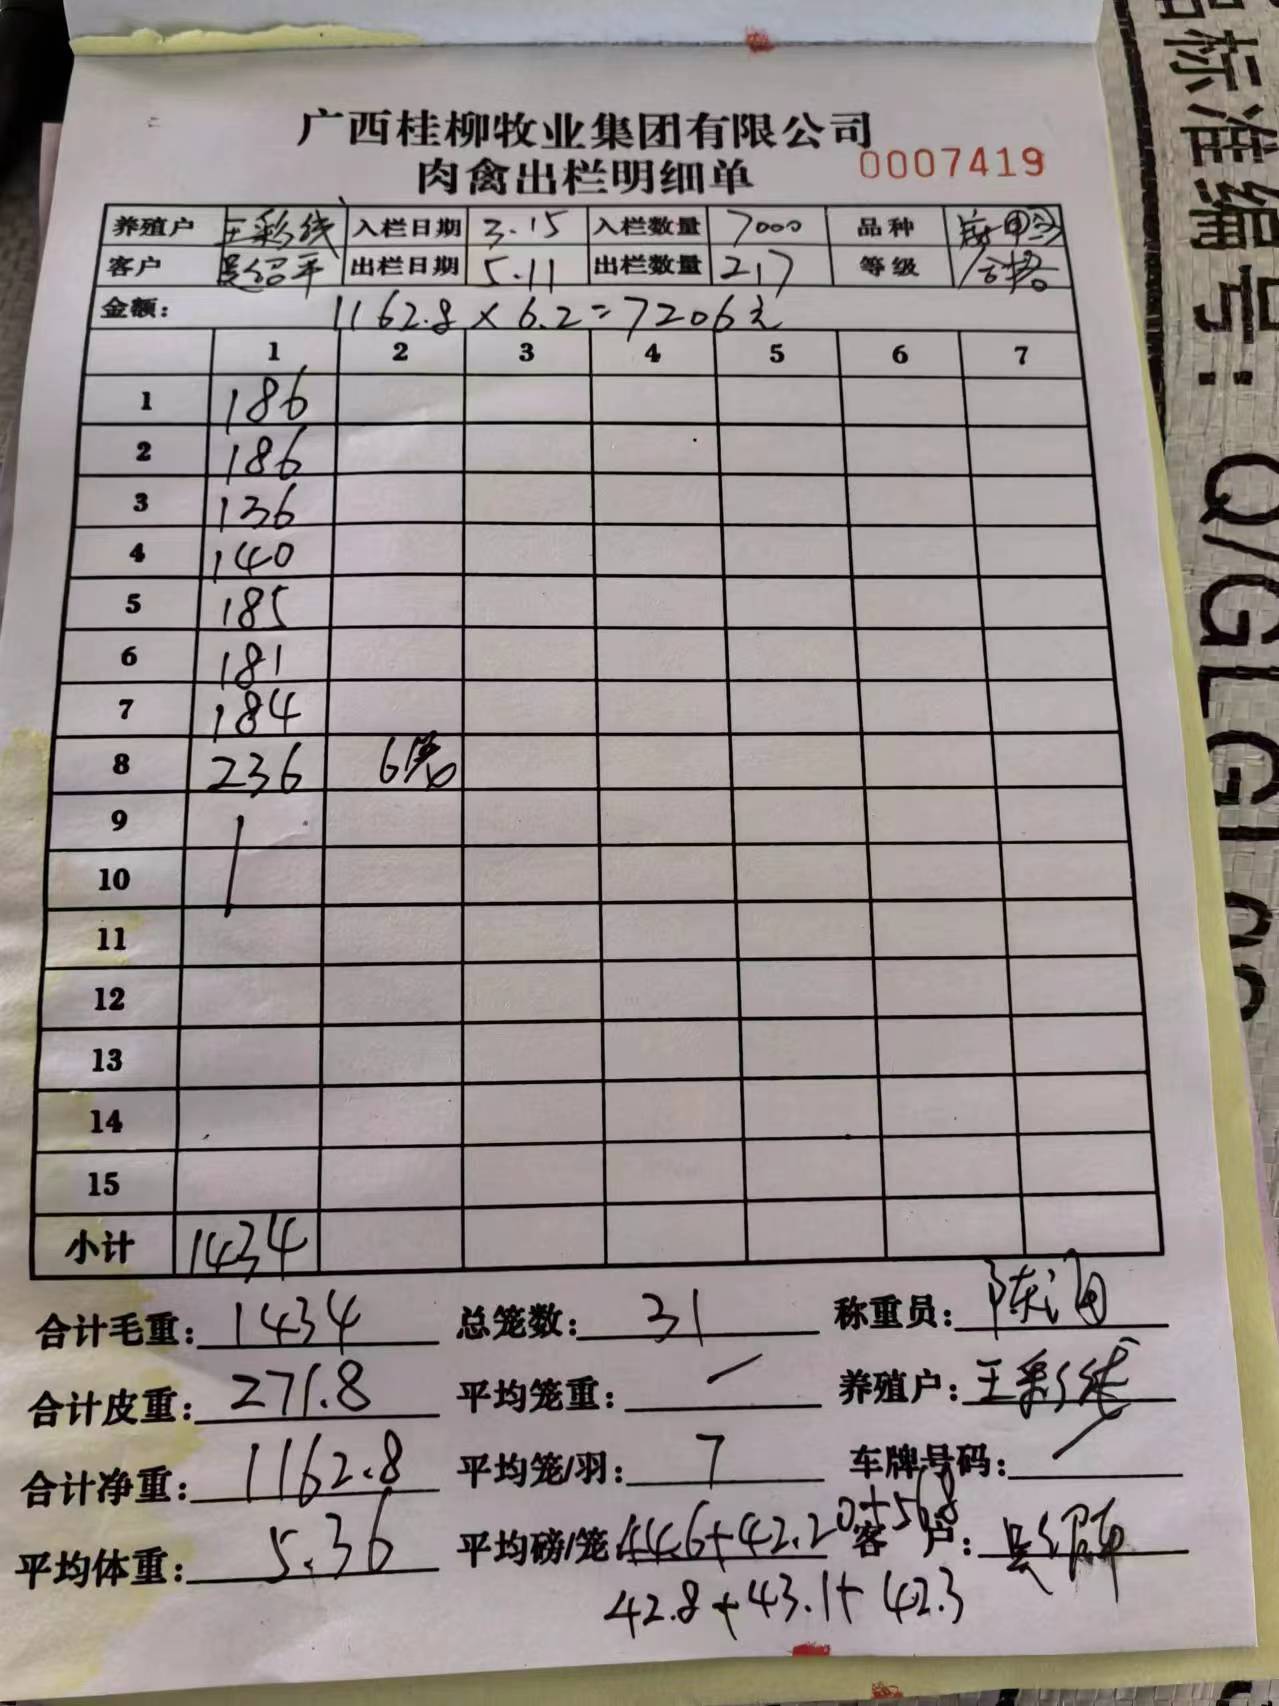 广西桂柳牧业集团有限公司
肉禽出栏明细单 0007419
养殖户 王彩线 入栏日期 3.15 入栏数量 7000 品种
客户 吴绍平 出栏日期 5.11 出栏数量 217 等级 合格
金额: 1162.8×6.2=7206元
1 2 3 4 5 6 7
1 186
2 186
3 136
4 140
5 185
6 181
7 184
8 236 6笼
9
10
11
12
13
14
15
小计 1434
合计毛重: 1434 总笼数: 31 称重员: 陈海
合计皮重: 271.8 平均笼重: 养殖户: 王彩线
合计净重: 1162.8 平均笼/羽: 7 车牌号码:
平均体重: 5.36 平均磅/笼: 44.6+42.20+56.8 客户: 吴绍平
42.8+43.1+42.3
品标准编号: Q/GLGL